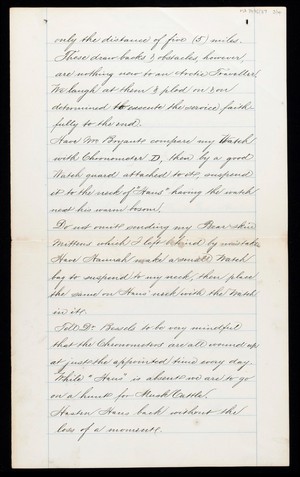 only the distance of five (5) miles.
These drawbacks & obstacles, however,
are nothing new to an Arctic Traveller.
We laugh at them & plod on & on
determined to execute the service faith-
fully to the end.
Have Mr Bryants compare my Watch
with Chronometer D, then by a good
Watch guard attached to it, suspend
it to the neck of "Hans" having the watch
next his warm bosom.
Do not omit sending my Bear skin
Mittens which I left behind by mistake
Have Hannah make a small Watch
bag to suspend to my neck, then place
the same on Hans' neck with the Watch
in it.
Tell Dr Bessels to be very mindful
that the Chronometers are all wound up
at just the appointed time every day
While "Hans" is absent we are to go
on a hunt for Musk Cattle.
Hasten Hans back without the
loss of a moment.